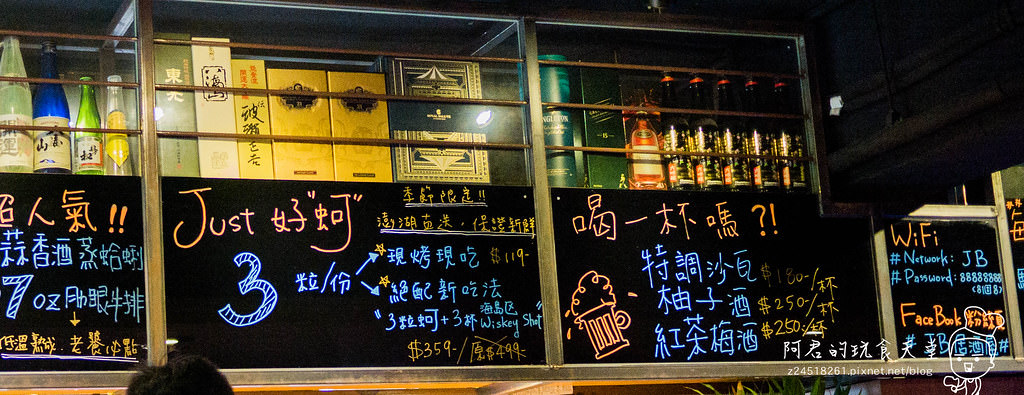 超人氣!!
蒜香酒蒸蛤蜊
7oz 肋眼牛排
低溫熟成.老饕必點
Just 好"蚵"
3 粒/份
季節限定!!
澎湖直送.保證新鮮
現烤現吃 $119-
絕配新吃法
"3粒蚵+3杯 海島区 Wiskey Shot"
$359-/原$499-
喝一杯嗎?!
特調沙瓦 $180-/杯
柚子酒 $250-/杯
紅茶梅酒 $250-/杯
WiFi
# Network: JB
# Password: 88888888
<81回8>
FaceBook 粉絲頁
# JB居酒屋 #
東光
八海山
阿君的玩食天堂
z24518261.pixnet.net/blog